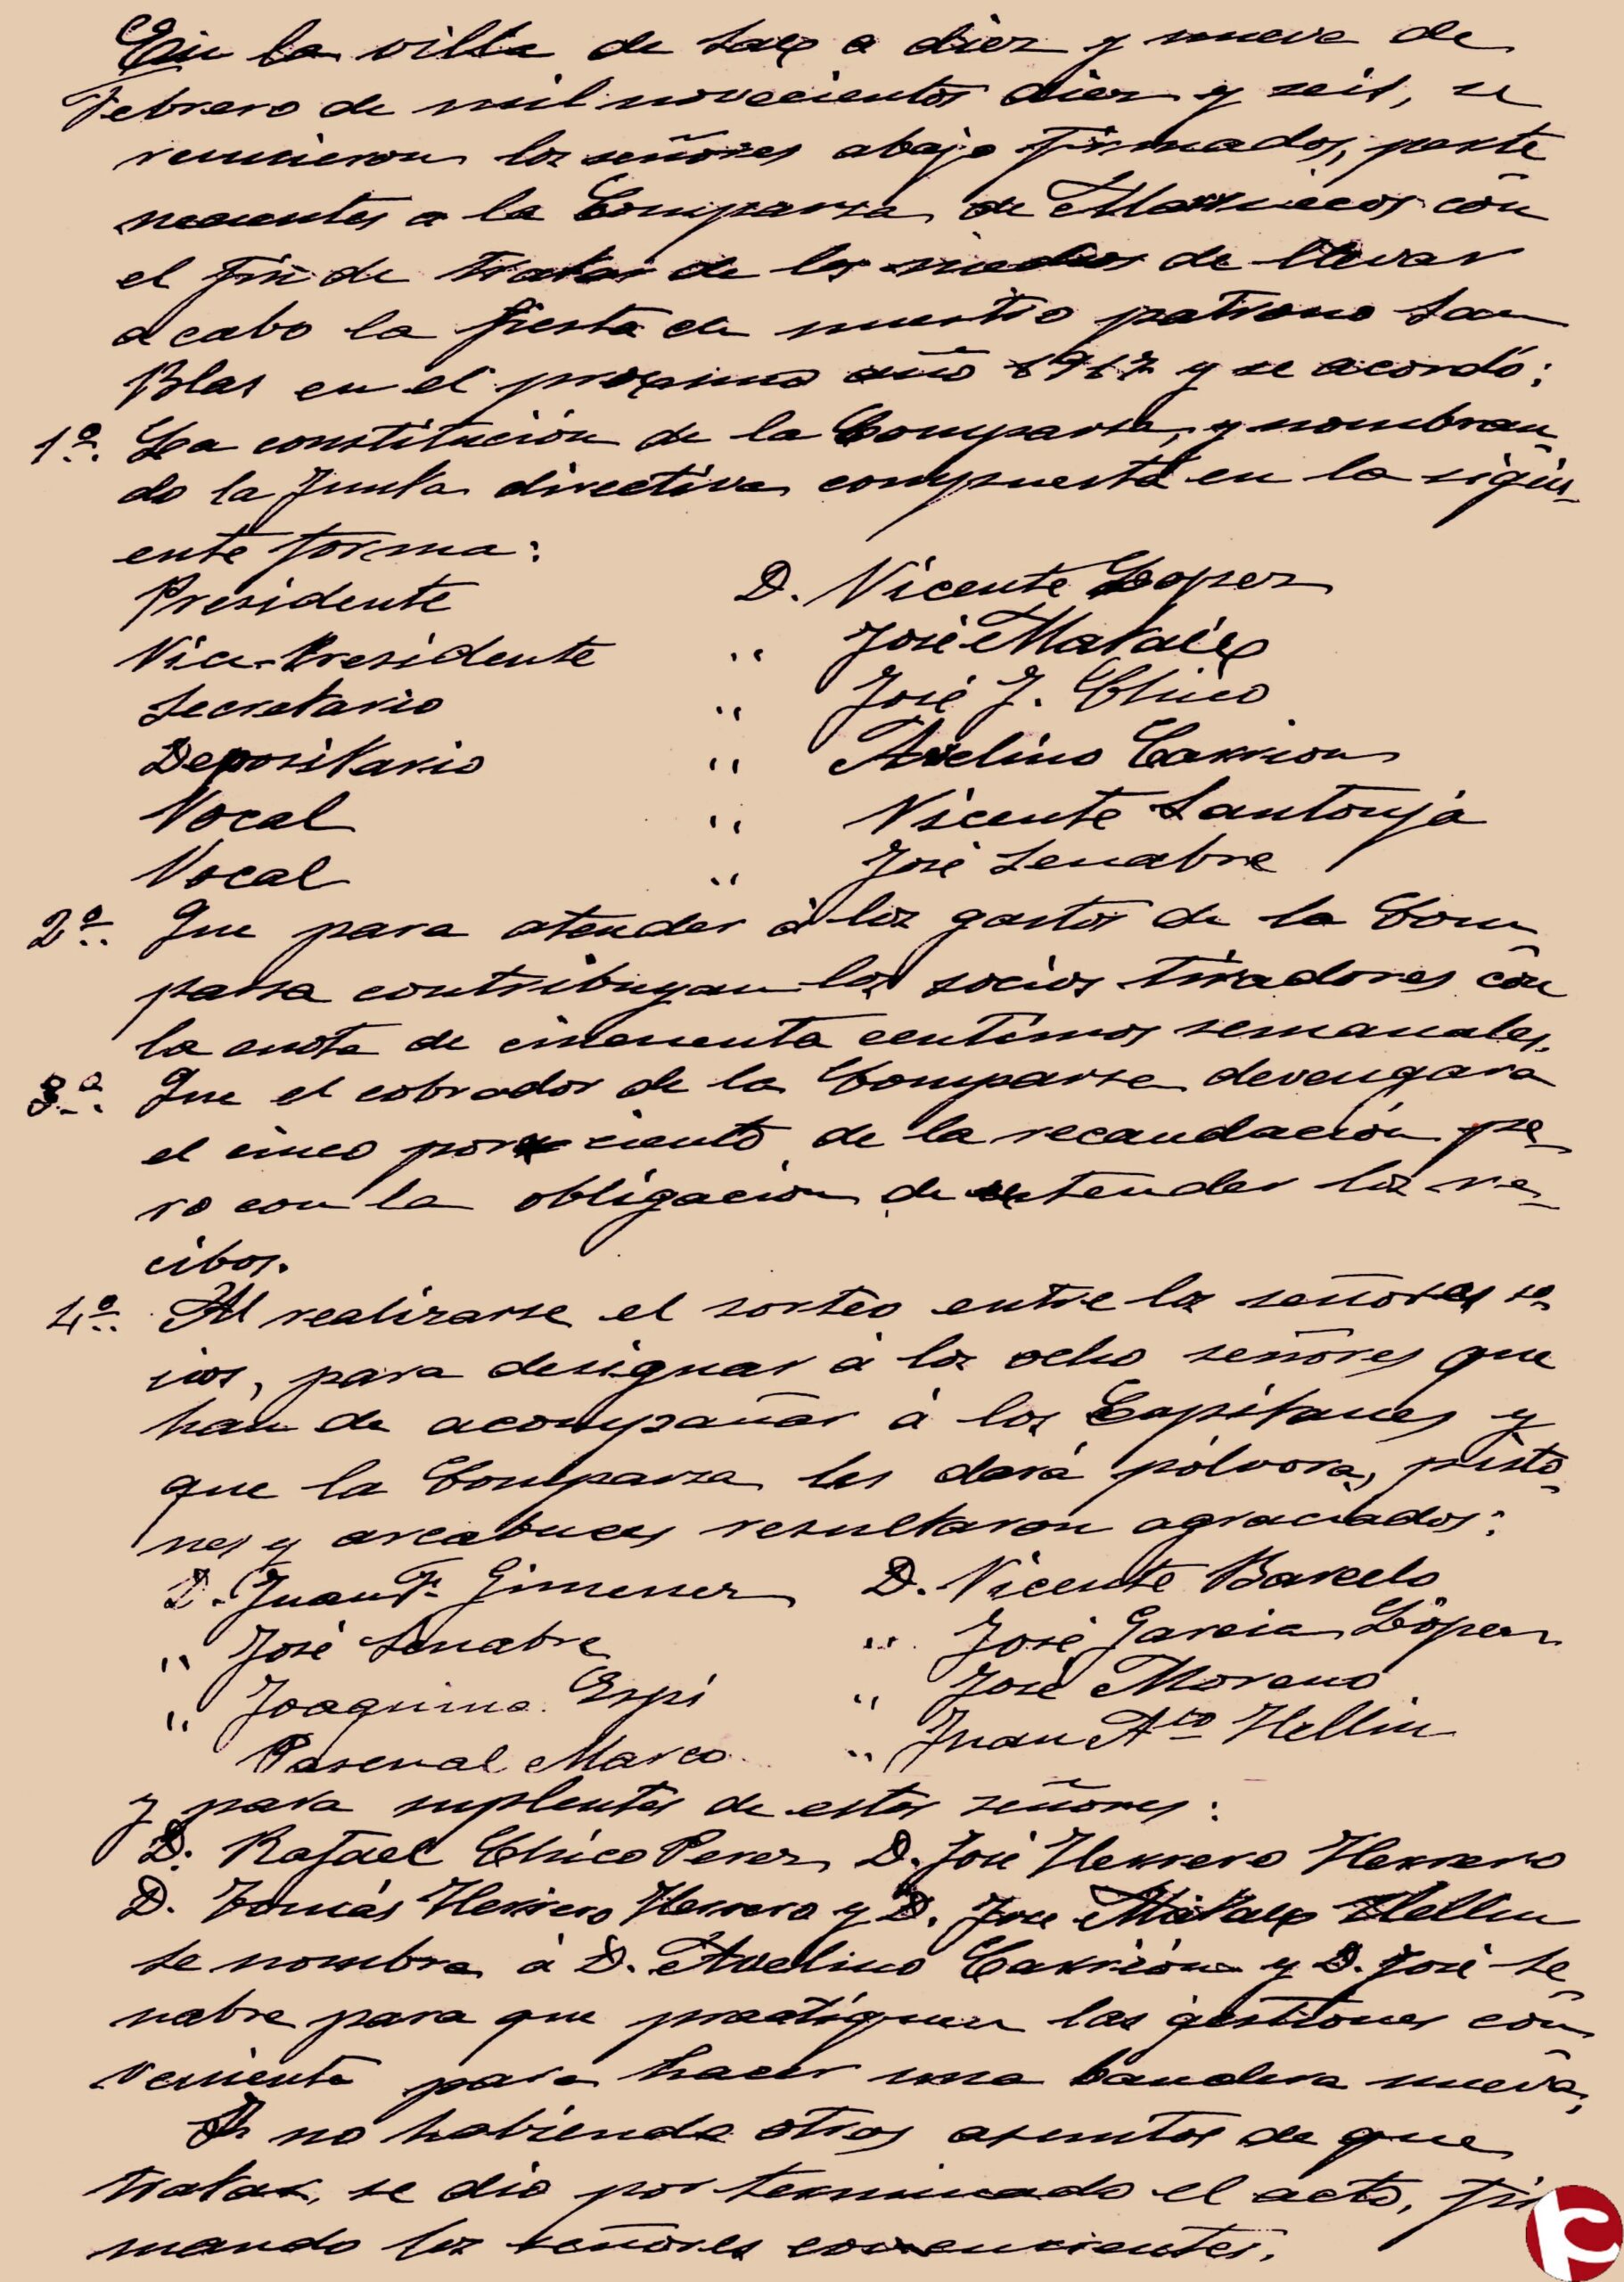 En la villa de Sax a diez y nueve de
Febrero de mil novecientos diez y seis, se
reunieron los señores abajo firmados, perte
necientes a la Comparsa de Marruecos con
el fin de tratar de los medios de llevar
a cabo la fiesta de nuestro patrono San
Blas en el proximo año 1917 y se acordó:
1º. La constitución de la Comparsa, y nombran-
do la Junta directiva compuesta en la sigui-
ente forma:
Presidente D. Vicente Lopez
Vice-Presidente " José Mataix
Secretario " José J. Chico
Depositario " Avelino Carrion
Vocal " Vicente Santonja
Vocal " José Senabre
2º. Que para atender á los gastos de la Com
parsa contribuyan los socios tiradores con
la cuota de cincuenta centimos semanales.
3º. Que el cobrador de la Comparsa devengara
el cinco por ciento de la recaudación pe-
ro con la obligación de estender los re-
cibos.
4º. Al realizarse el sorteo entre los señores so-
cios, para designar á los ocho señores que
han de acompañar á los Capitanes y
que la Comparsa les dará pólvora, pisto-
nes y arcabuces resultaron agraciados:
D. Juan Fº Gimenez D. Vicente Barcelo
" José Senabre " José Garcia López
" Joaquina Espí " José Moreno
Pascual Marco " Juan Ato Hellin
y para suplentes de estos señores:
D. Rafael Chico Perez, D. José Herrero Herrero
D. Tomás Herrero Herrero y D. Jose Mataix Hellin
se nombra á D. Avelino Carrión y D. José Se
nabre para que practiquen las gestiones con
veniente para hacer una bandera nueva,
Y no habiendo otros asuntos de que
tratar, se dió por terminado el acto, fir
mando los señores concurrentes.